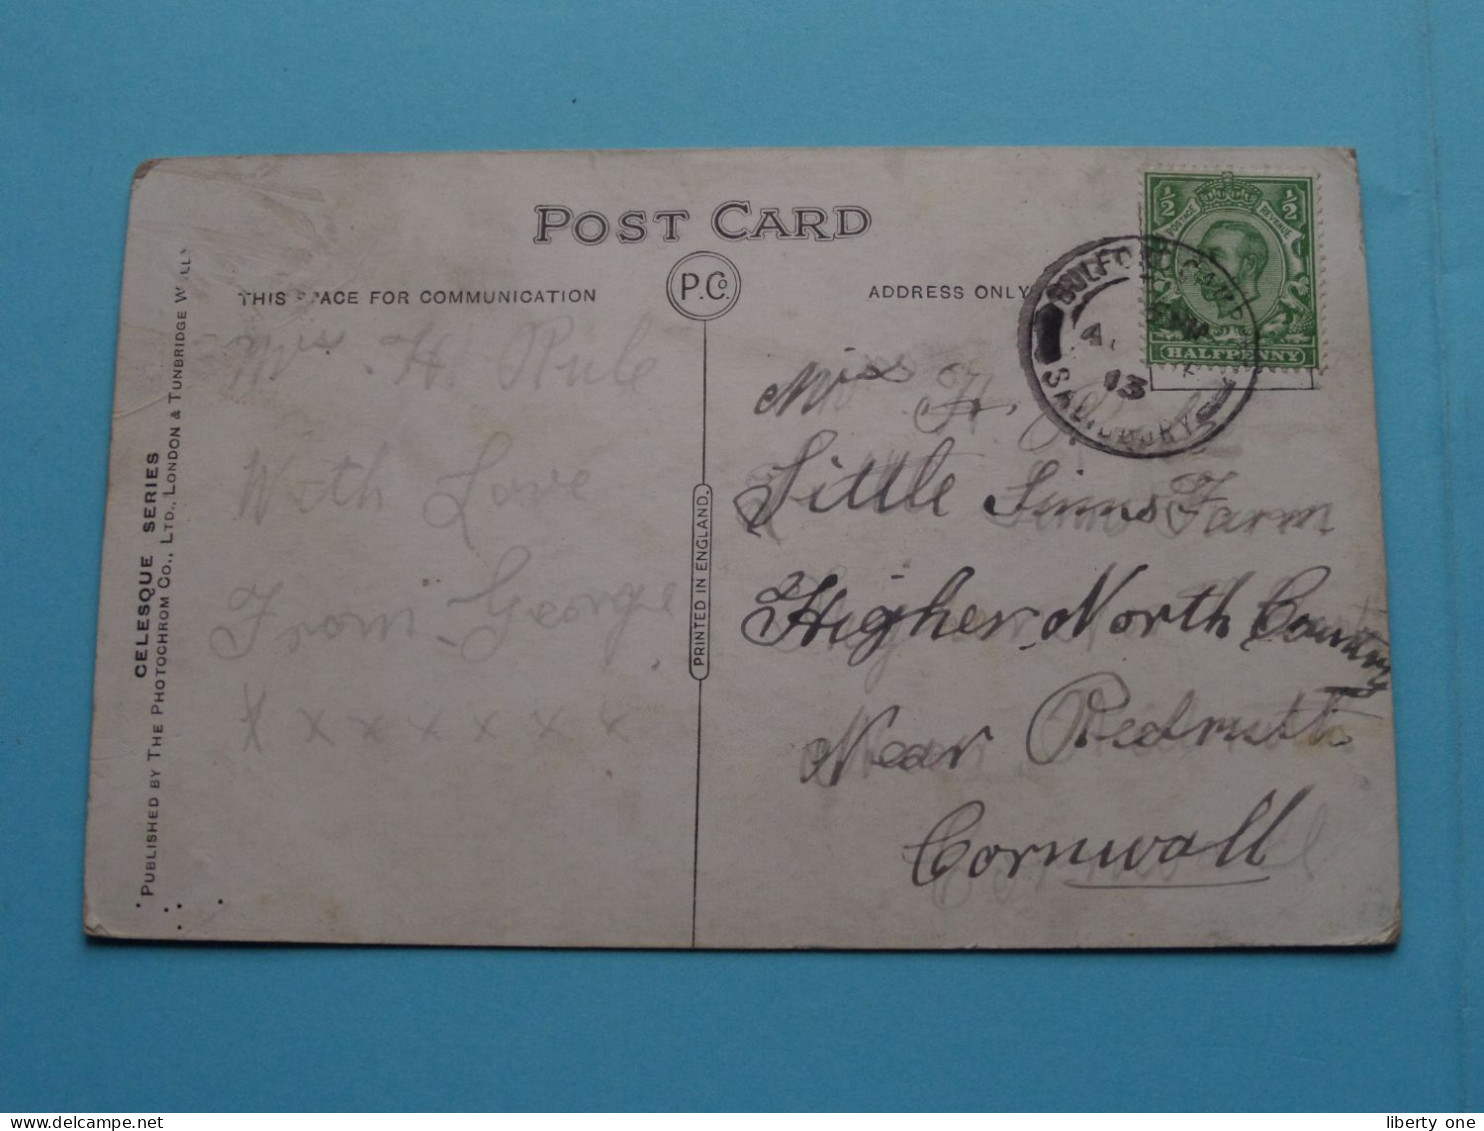 POST CARD
P.Co.
THIS SPACE FOR COMMUNICATION
ADDRESS ONLY
½ ½
POSTAGE REVENUE
HALFPENNY
BULFORD CAMP
13
SALISBURY
Mrs H. Rule
With Love
From George
x x x x x x x
Mrs H.
Little Sinns Farm
Higher North Country
Near Redruth
Cornwall
PRINTED IN ENGLAND.
CELESQUE SERIES
PUBLISHED BY THE PHOTOCHROM CO., LTD., LONDON & TUNBRIDGE WELLS
liberty one